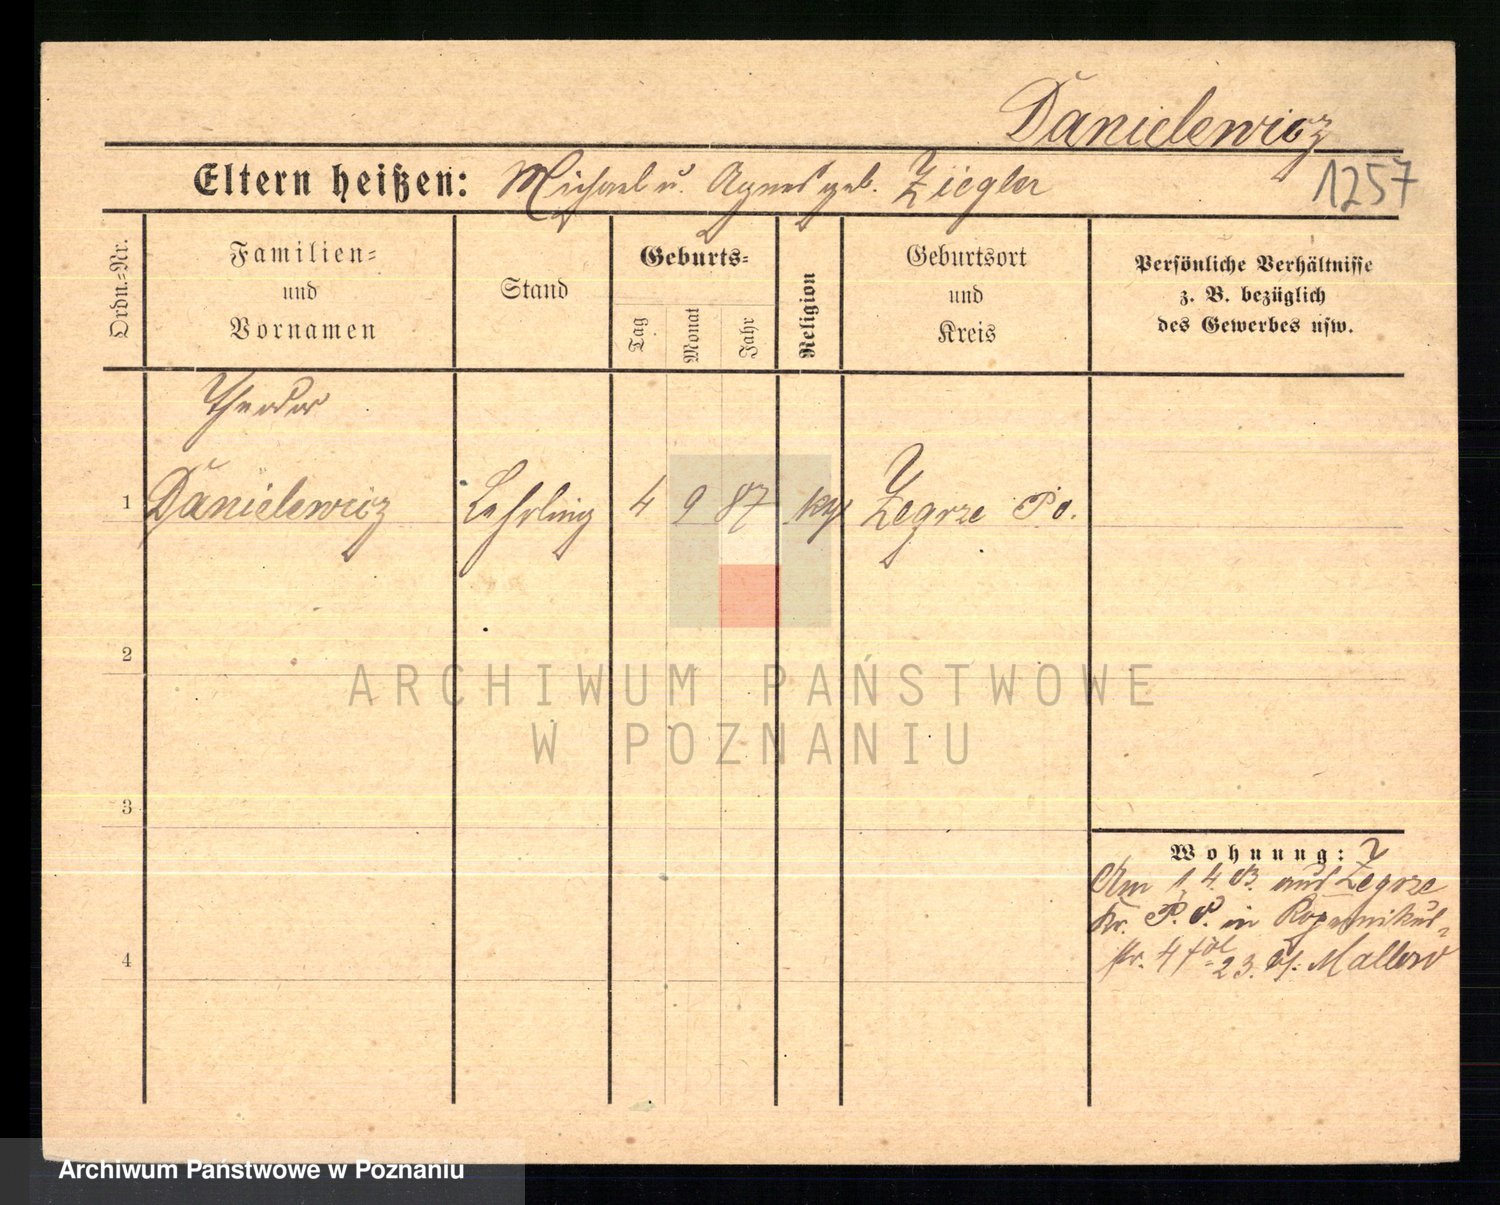 Danielewicz
Eltern heißen: Michael u. Agnes geb. Ziegler
1257
Ordn.-Nr.
Familien-
und
Vornamen
Stand
Geburts-
Tag
Monat
Jahr
Religion
Geburtsort
und
Kreis
Persönliche Verhältnisse
z. B. bezüglich
des Gewerbes usw.
Theodor
1 Danielewicz Lehrling 4 9 87 Zegrze Po.
2
ARCHIWUM PAŃSTWOWE
W POZNANIU
3
Wohnung:
Am 1. 4. 03. aus Zegrze
Kr. P. O. in Kopernikus-
str. 4 23. bei Mallow
4
Archiwum Państwowe w Poznaniu